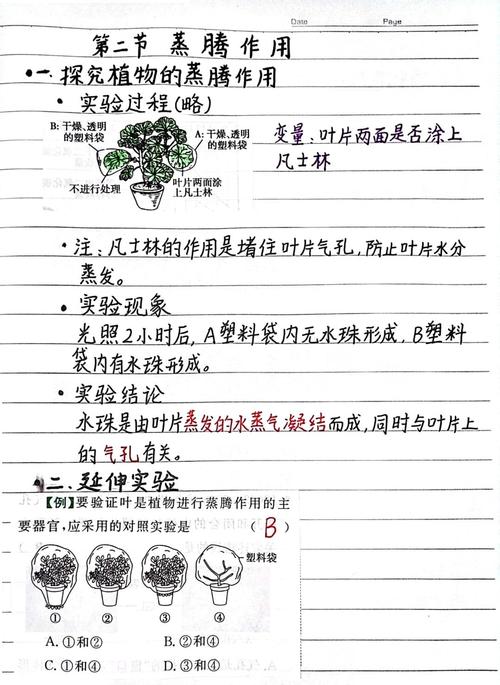 Date Page
第二节 蒸腾作用
一.探究植物的蒸腾作用
·实验过程(略)
B:干燥、透明
的塑料袋
A:干燥、透明
的塑料袋
不进行处理
叶片两面涂
上凡士林
变量:叶片两面是否涂上
凡士林
·注:凡士林的作用是堵住叶片气孔,防止叶片水分
蒸发。
·实验现象
光照2小时后,A塑料袋内无水珠形成,B塑料
袋内有水珠形成。
·实验结论
水珠是由叶片蒸发的水蒸气凝结而成,同时与叶片上
的气孔有关。
二.延伸实验
【例】要验证叶是植物进行蒸腾作用的主
要器官,应采用的对照实验是 (B)
塑料袋
① ② ③ ④
A.①和② B.②和④
C.①和④ D.③和④